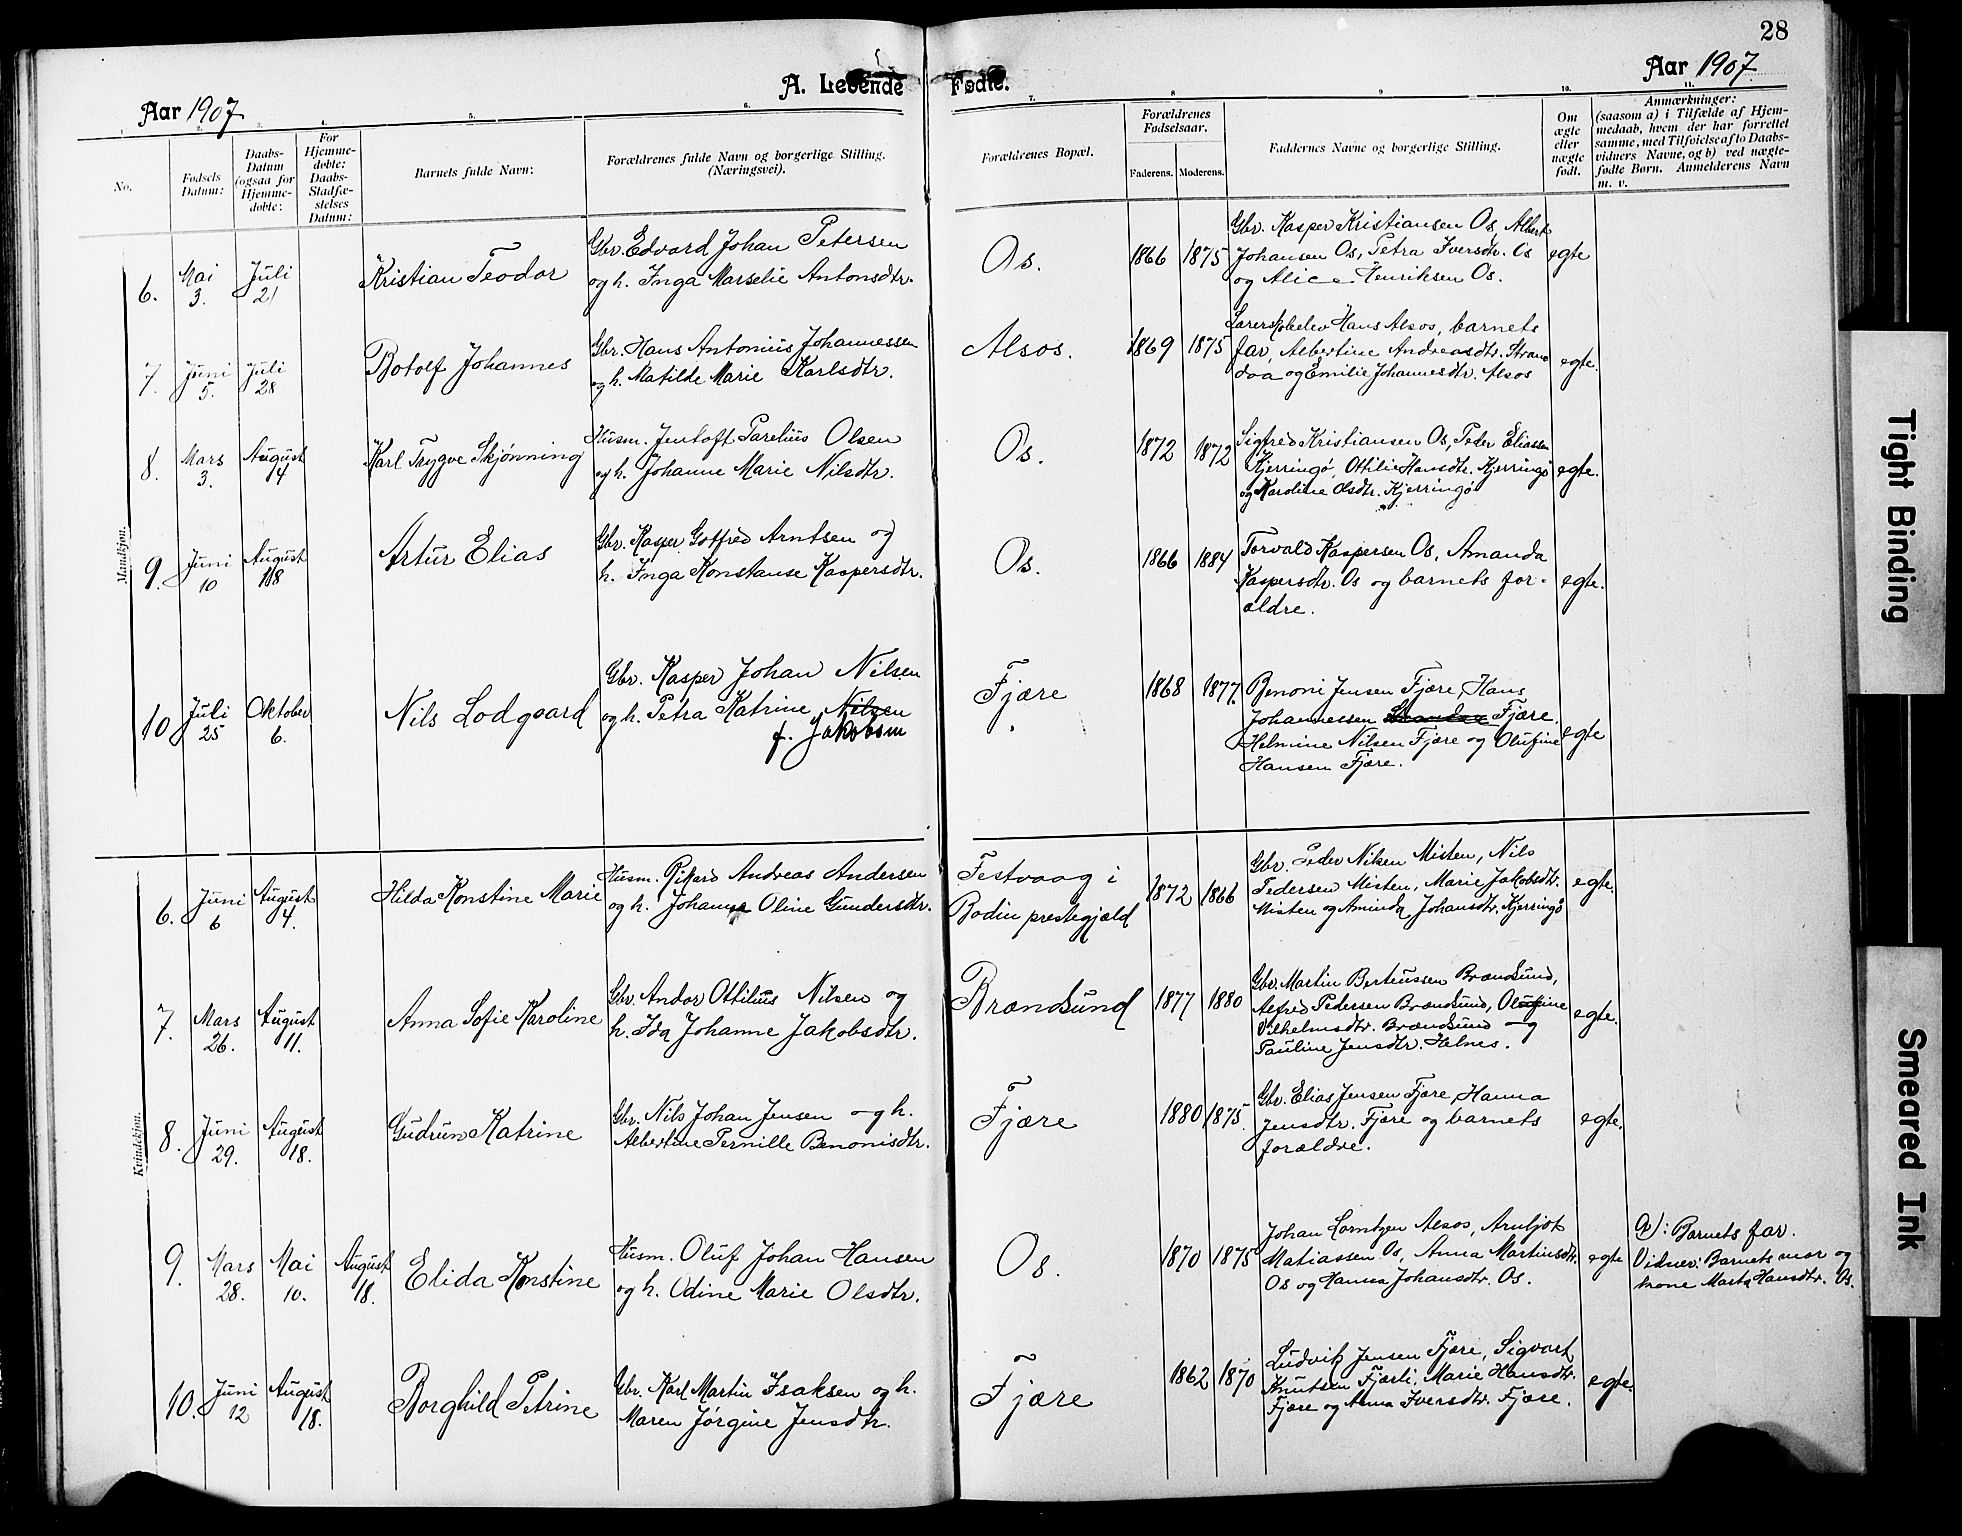 28
Aar 1907
A. Levende Fødte.
Aar 1907
1. 2. 3. 4. 5. 6. 7. 8. 9. 10. 11.
No.
Fødsels
Datum:
Daabs-
Datum
(ogsaa for
Hjemme-
døbte:
For
Hjemme-
døbte:
Daabs-
Stadfæ-
stelses
Datum:
Barnets fulde Navn:
Forældrenes fulde Navn og borgerlige Stilling.
(Næringsvei).
Forældrenes Bopæl.
Forældrenes
Fødselsaar.
Faderens. Moderens.
Faddernes Navne og borgerlige Stilling.
Om
ægte
eller
nægte
født.
Anmærkninger:
(saasom a) i Tilfælde af Hjem-
medaab, hvem der har forrettet
samme, med Tilføielse af to Daabs-
vidners Navne, og b) ved nægte-
fødte Børn. Anmelderens Navn
m. v.
Mandkjøn.
6. Mai 3. Juli 21
Kristian Teodor
Gbr. Edvard Johan Petersen
og h. Inga Marselie Antonsdtr.
Os.
1866 1875
Gbr. Kasper Kristiansen Os, Albert
Johansen Os, Petra Iversdtr. Os
og Alice Henriksen Os.
egte
7. Juni 5. Juli 28
Botolf Johannes
Gbr. Hans Antonius Johannessen
og h. Matilde Marie Karlsdtr.
Alsos.
1869 1875
Lærerskoleelev Hans Alsos, barnets
far, Albertine Andreasdtr. Strand
daa og Emilie Johannesdtr. Alsos
egte.
8. Mars 3. August 4
Karl Trygve Skjønning
Husm. Jentoft Parelius Olsen
og h. Johanne Marie Nilsdtr.
Os.
1872 1872
Sigfred Kristiansen Os, Peder Eliassen
Kjerringø, Ottilie Hansdtr. Kjerringø
og Karoline Olsdtr. Kjerringø
egte.
9. Juni 10 August 18
Artur Elias
Gbr. Kasper Gotfred Arntsen og
h. Inga Konstanse Kaspersdtr.
Os.
1866 1884
Torvald Kaspersen Os, Amanda
Kaspersdtr. Os og barnets for-
ældre.
egte.
10 Juli 25 Oktober 6.
Nils Lodgaard
Gbr. Kasper Johan Nilsen
og h. Petra Katrine Nilsen
f. Jakobsen
Fjære
1868 1877.
Benoni Jensen Fjære, Hans
Johannessen Fjære.
Helmine Nilsen Fjære og Olufine
Hansen Fjære.
egte
Kvindekjøn.
6. Juni 6 August 4.
Hilda Konstine Marie
Husm. Rikard Andreas Andersen
og h. Johanna Oline Gundersdtr.
Festvaag i
Bodin prestegjæld
1872 1866
Gbr. Peder Nilsen Misten, Nils
Pedersen Misten, Marie Jakobsdtr.
Misten og Aminda Johansdtr. Kjerringø
egte.
7. Mars 26. August 11.
Anna Sofie Karoline
Gbr. Andor Ottilius Nilsen og
h. Ida Johanne Jakobsdtr.
Brændsund
1877 1880
Gbr. Martin Berteussen Brændsund,
Alfred Pedersen Brændsund, Olufine
Vilhelmsdtr. Brændsund og
Pauline Jensdtr. Halnes.
egte.
8. Juni 29. August 18.
Gudrun Katrine
Gbr. Nils Johan Jensen og h.
Albertine Pernille Benonisdtr.
Fjære
1880 1875.
Gbr. Elias Jensen Fjære, Hanna
Jensdtr. Fjære og barnets
forældre.
egte.
9. Mars 28. Mai 10. August 18.
Elida Konstine
Husm. Oluf Johan Hansen
og h. Odine Marie Olsdtr.
Os.
1870 1875
Johan Lorntzen Alsos, Arnljot
Matiassen Os, Anna Martinsdtr.
Os og Hanna Johansdtr. Os.
egte
a): Barnets far.
Vidner: Barnets mor og
kone Marta Hansdtr. Os.
10. Juni 12 August 18.
Borghild Petrine
Gbr. Karl Martin Isaksen og h.
Maren Jørgine Jensdtr.
Fjære
1862 1870
Ludvik Jensen Fjære, Sigvart
Knutsen Fjærli, Marie Hansdtr.
Fjære og Anna Iversdtr. Fjære.
egte.
Tight Binding
Smeared Ink